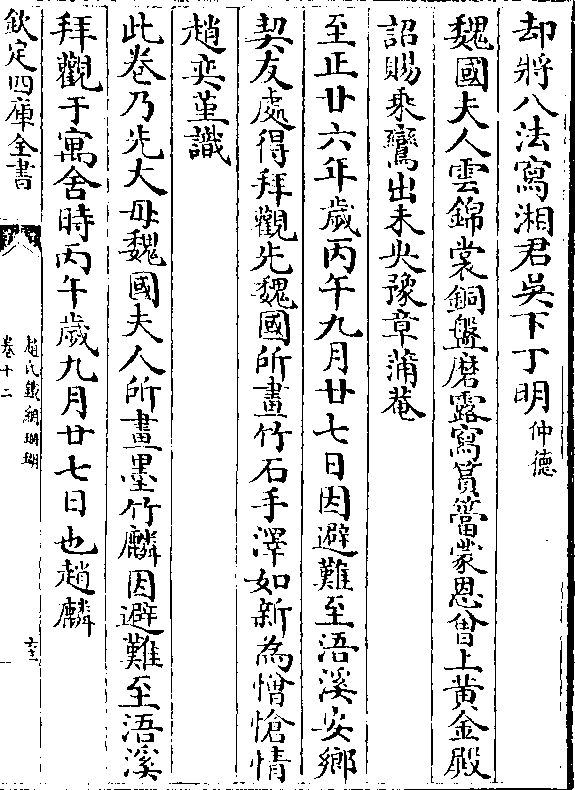 却將八法寫湘君吳下丁明仲德
魏國夫人雲錦裳銅盤磨露寫篔簹蒙恩曾上黃金殿
詔賜乘鸞出未央豫章蒲菴
至正廿六年歲丙午九月廿七日因避難至浯溪安鄉
契友處得拜觀先魏國所畫竹石手澤如新為憎愴情
趙奕堇識
此卷乃先大母魏國夫人所畫墨竹麟因避難至浯溪
拜觀于寓舍時丙午歲九月廿七日也趙麟
欽定四庫全書
趙氏鐵網珊瑚
卷十二